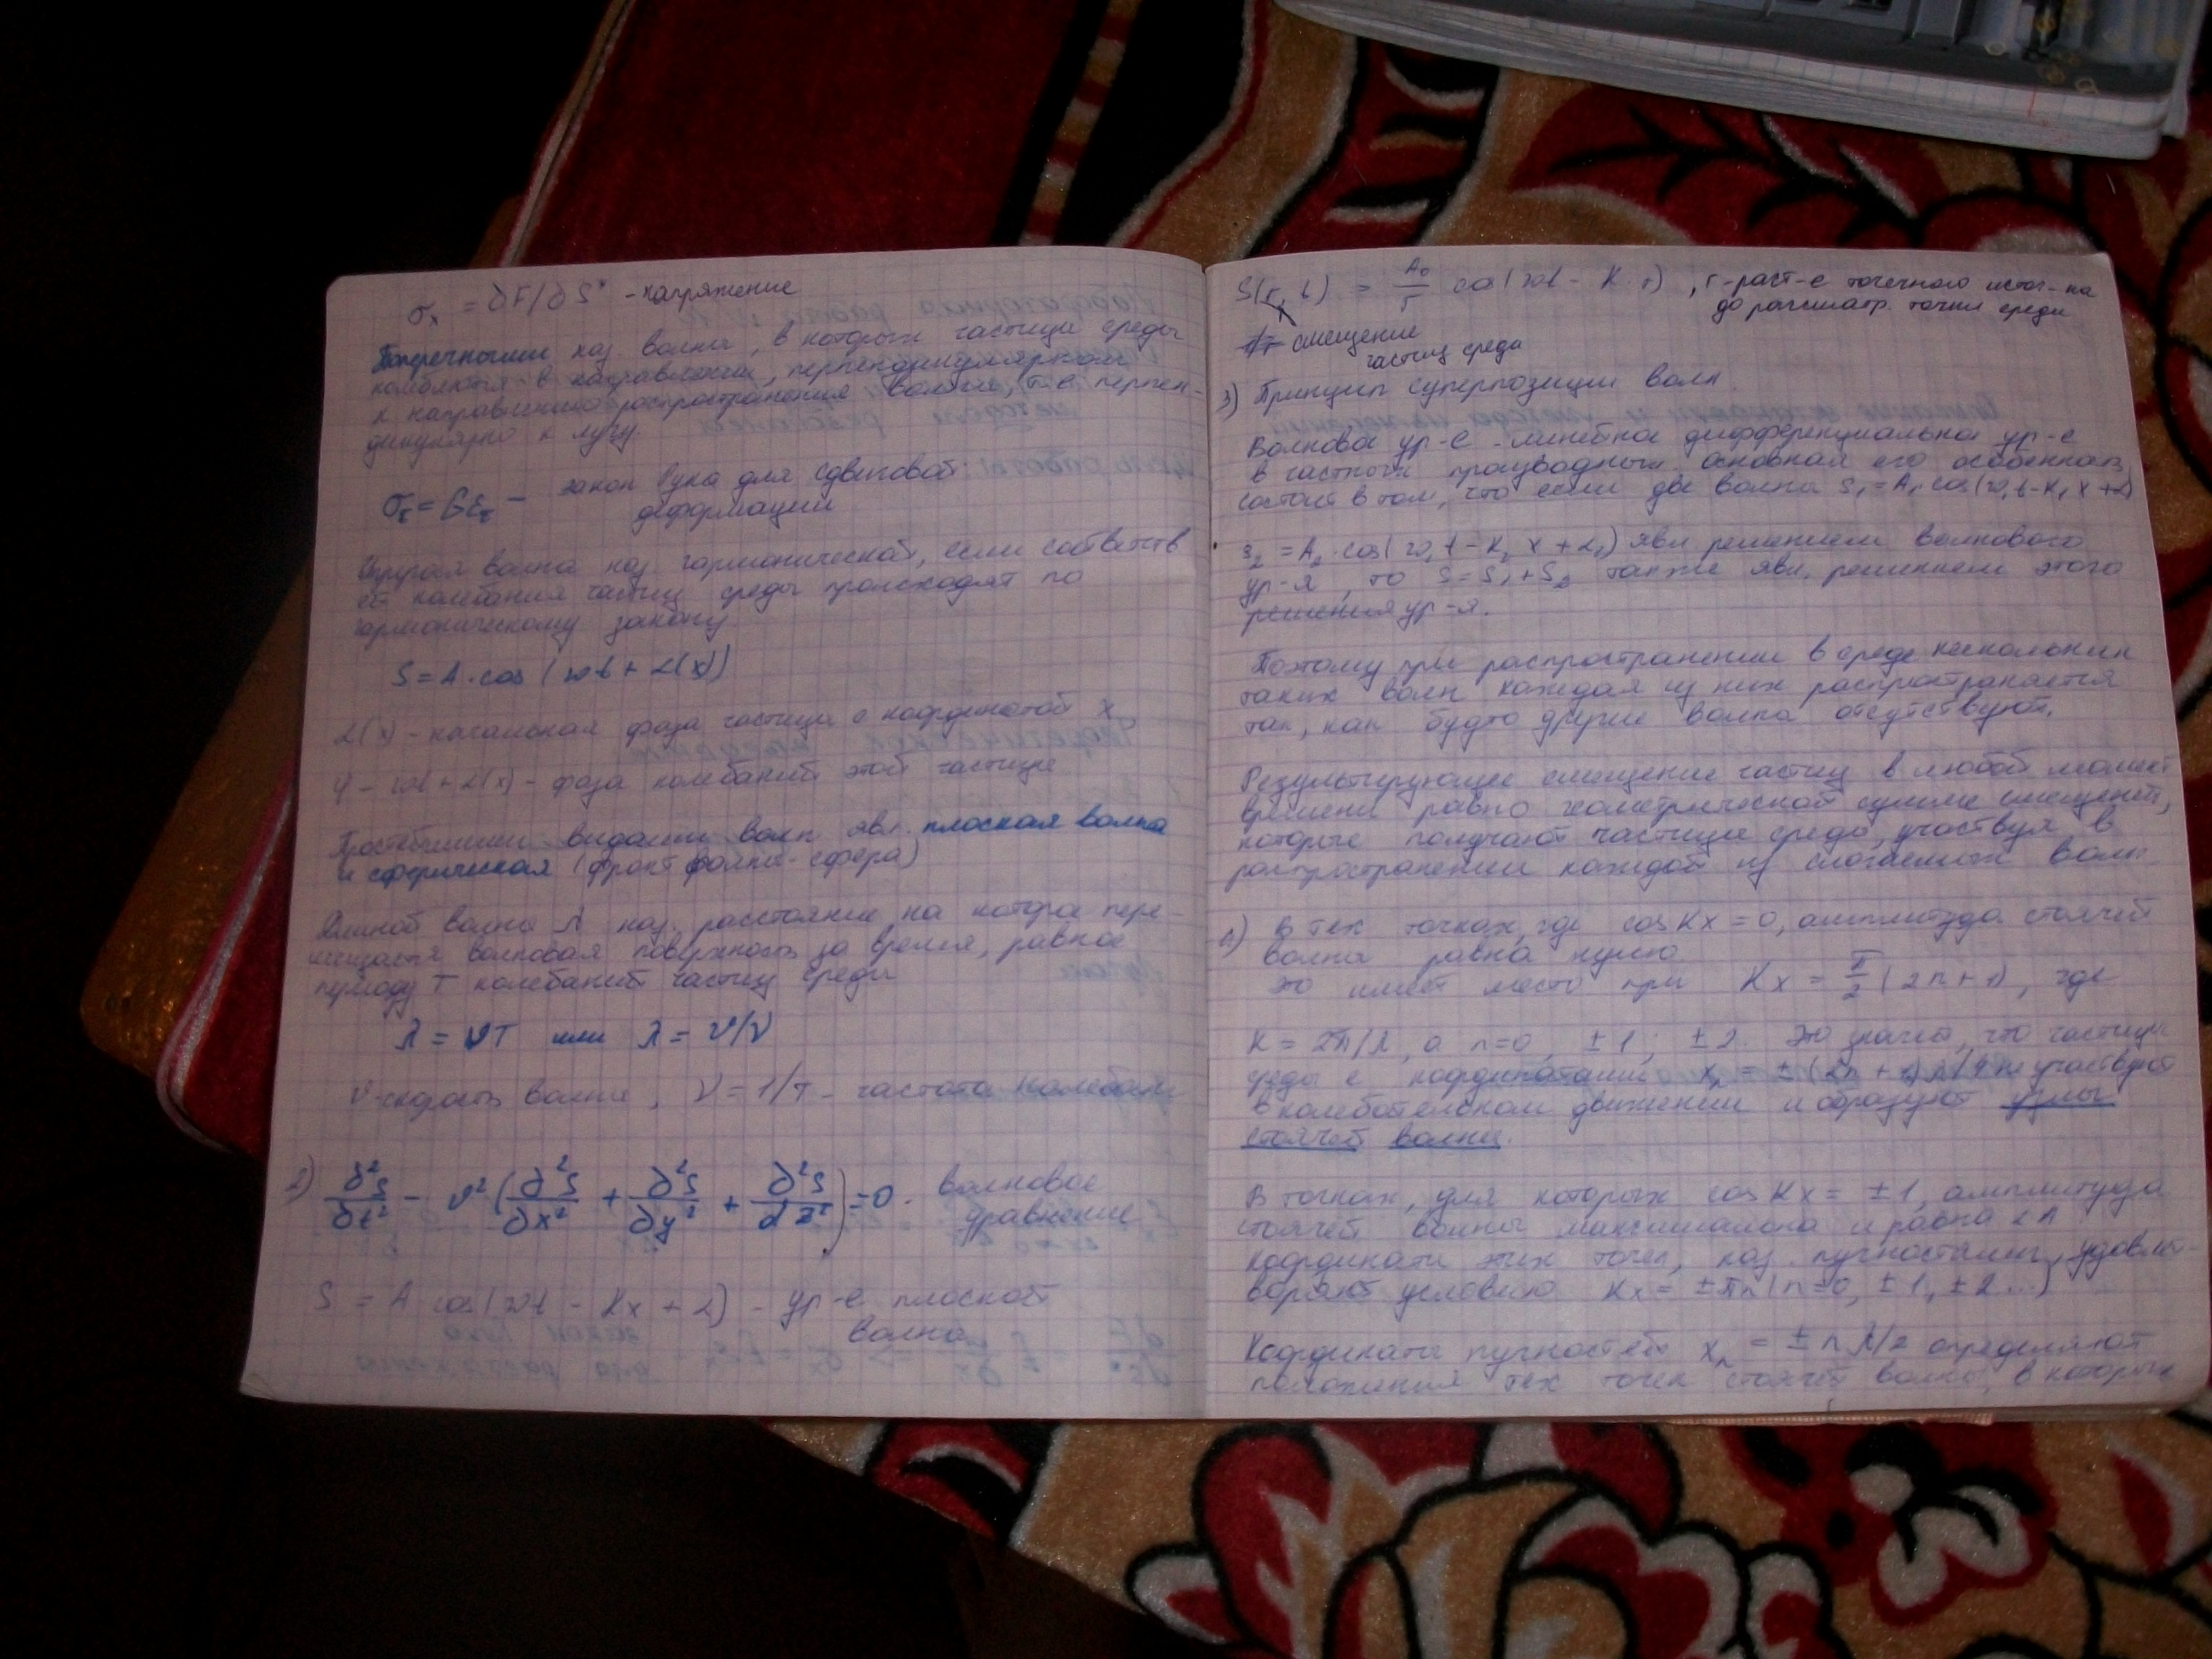 σₓ = ∂F/∂S - напряжение
Поперечными наз. волны, в которых частицы среды
колеблются в направлении, перпендикулярном
к направлению распространения волны, т.е. перпен-
дикулярно к лучу.
στ = Gετ - закон Гука для сдвиговой
деформации
Упругая волна наз. гармонической, если соответств.
ей колебания частиц среды происходят по
гармоническому закону
S = A·cos(ωt + α(x))
α(x) - начальная фаза частицы с координатой x
φ - ωt + α(x) - фаза колебаний этой частицы
Простейшими видами волн явл. плоская волна
и сферическая (фронт волны - сфера)
Длиной волны λ наз. расстояние, на которое пере-
мещается волновая поверхность за время, равное
периоду T колебаний частиц среды
λ = υT или λ = υ/ν
υ-скорость волны, ν = 1/T - частота колебаний
2) ∂²S/∂t² - υ²(∂²S/∂x² + ∂²S/∂y² + ∂²S/∂z²) = 0 - волновое
уравнение
S = A cos(ωt - Kx + α) - ур-е плоской
волны
S(r, t) = A₀/r cos(ωt - K·r), r-раст-е точечного источ-ка
до рассматр. точки среды
смещение
частиц среды
3) Принцип суперпозиции волн.
Волновое ур-е - линейное дифференциальное ур-е
в частных производных. Основная его особенность
состоит в том, что если две волны S₁ = A₁ cos(ω₁t - K₁x + α)
S₂ = A₂·cos(ω₁t - K₂x + α₁) явл. решением волнового
ур-я, то S = S₁ + S₂ также явл. решением этого
решения ур-я.
Поэтому при распространении в среде нескольких
таких волн каждая из них распространяется
так, как будто другие волны отсутствуют.
Результирующее смещение частиц в любой момент
времени равно геометрической сумме смещений,
которые получают частицы среды, участвуя в
распространении каждой из слагаемых волн
4) В тех точках, где cos Kx = 0, амплитуда стоячей
волны равна нулю
это имеет место при Kx = π/2 (2n + 1), где
K = 2π/λ, а n=0, ±1; ±2. Это значит, что частицы
среды с координатами xₙ = ±(2n + 1)λ/4 не участвуют
в колебательном движении и образуют узлы
стоячей волны.
В точках, для которых cos Kx = ±1, амплитуда
стоячей волны максимальна и равна 2A
координаты этих точек, наз. пучностями, удовлет-
воряют условию Kx = ±πn (n=0, ±1, ±2 ...)
Координаты пучностей xₙ = ±nλ/2 определяют
положения тех точек стоячей волны, в которых